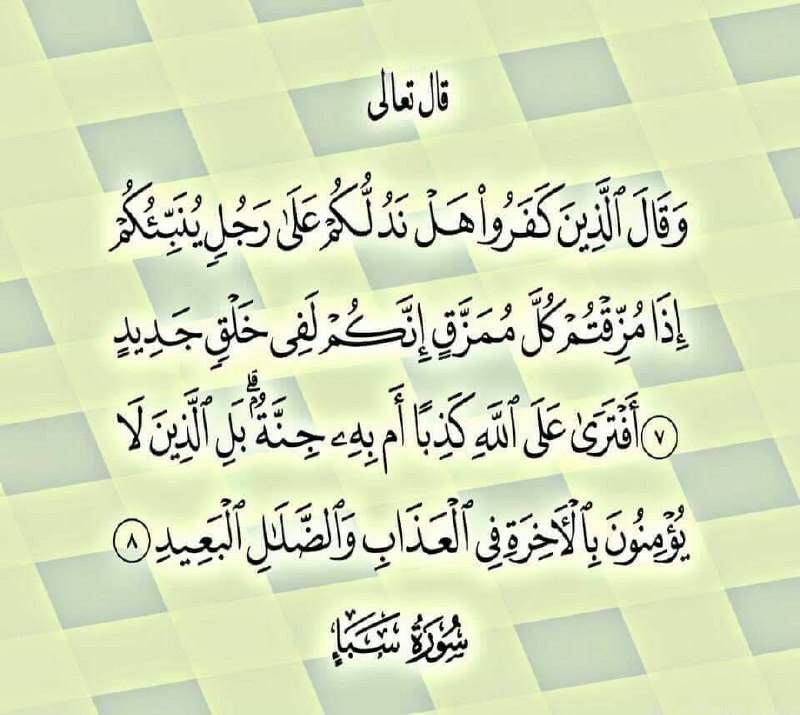 قال تعالى
وَقَالَ ٱلَّذِينَ كَفَرُوا۟ هَلْ نَدُلُّكُمْ عَلَىٰ رَجُلٍ يُنَبِّئُكُمْ
إِذَا مُزِّقْتُمْ كُلَّ مُمَزَّقٍ إِنَّكُمْ لَفِى خَلْقٍ جَدِيدٍ
٧ أَفْتَرَىٰ عَلَى ٱللَّهِ كَذِبًا أَم بِهِۦ جِنَّةٌۢ ۗ بَلِ ٱلَّذِينَ لَا
يُؤْمِنُونَ بِٱلْـَٔاخِرَةِ فِى ٱلْعَذَابِ وَٱلضَّلَـٰلِ ٱلْبَعِيدِ ٨
سُورَةُ سَبَإٍ